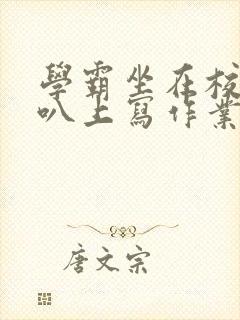 學霸坐在校
叭上寫作業
唐文宗